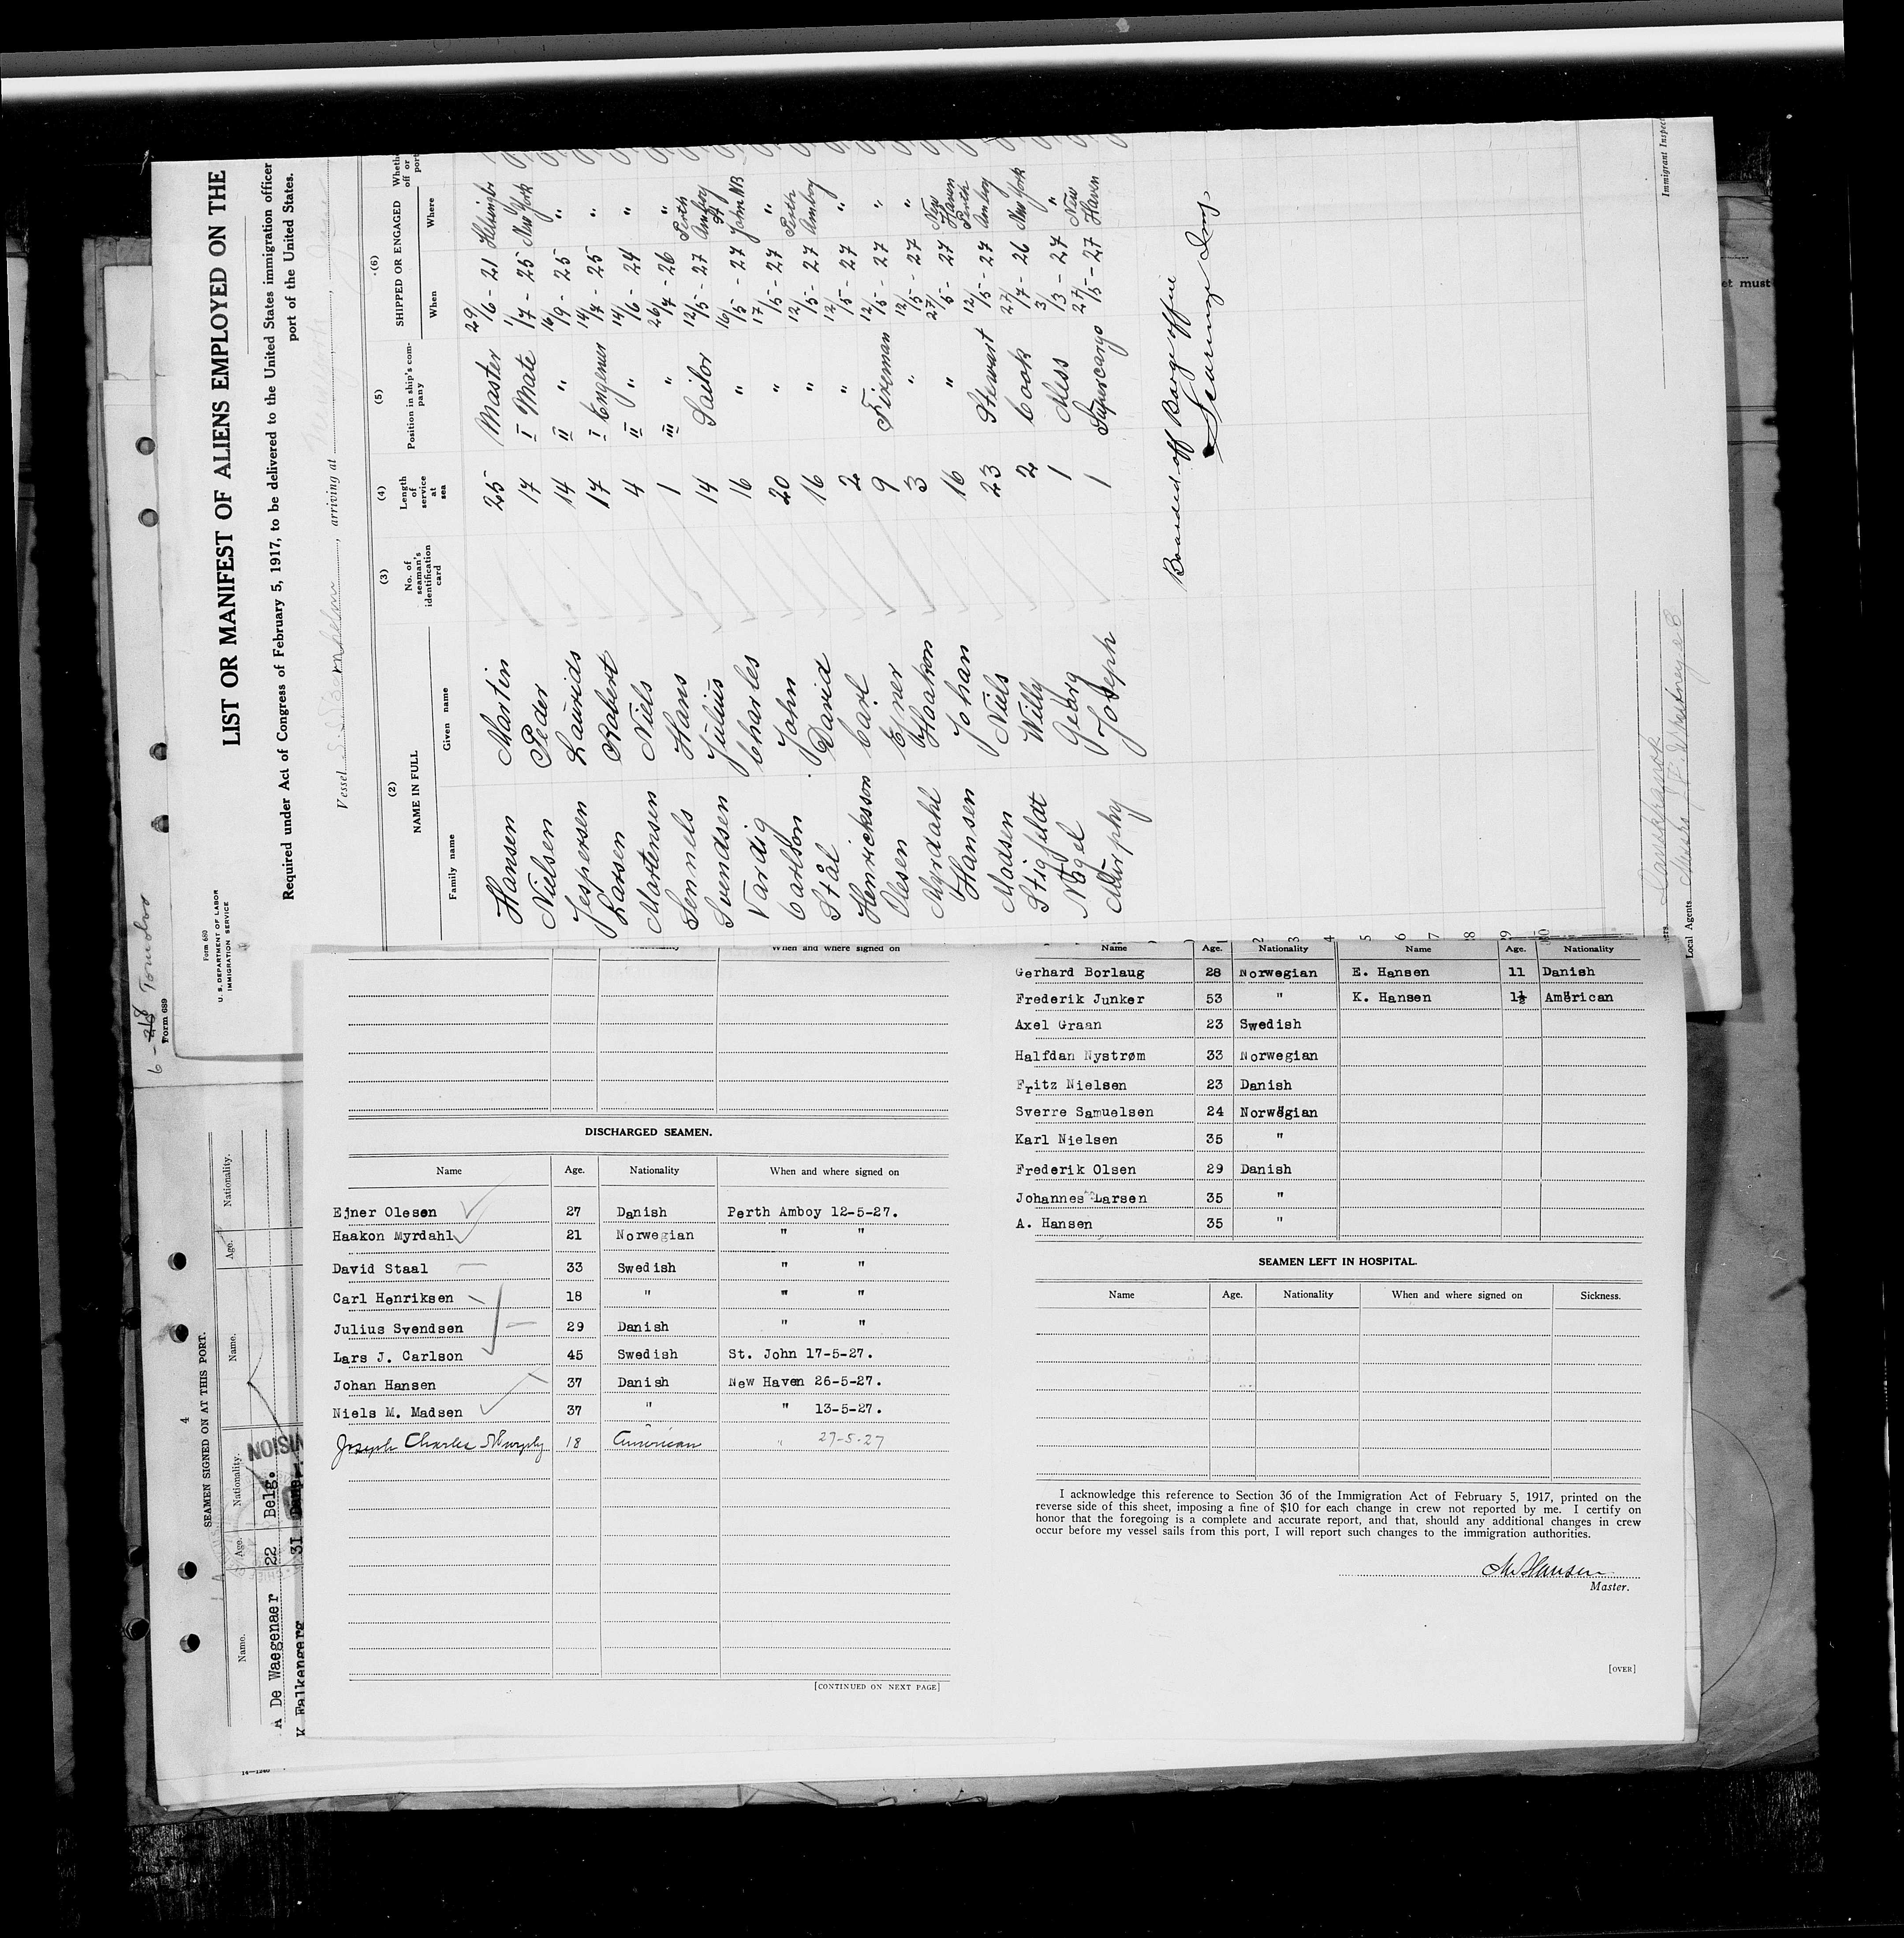 6 - 218 Tomolvo
Form 689
Form 680
U. S. DEPARTMENT OF LABOR
IMMIGRATION SERVICE
LIST OR MANIFEST OF ALIENS EMPLOYED ON THE
Required under Act of Congress of February 5, 1917, to be delivered to the United States immigration officer
port of the United States.
Vessel , arriving at ,
(2) (3) (4) (5) (6)
NAME IN FULL No. of seaman's identification card Length of service at sea Position in ship's company SHIPPED OR ENGAGED
Family name Given name When Where
Hansen Martin 25 Master 29/6 - 21
Nielsen Peder 17 I Mate 1/7 - 25 New York
Jespersen Laurids 14 II " 16/9 - 25 "
Larsen Robert 17 I Engeneur 14/7 - 25 "
Martensen Niels 4 II " 14/6 - 24 "
Sennels Hans 1 III " 26/7 - 26 "
Svendsen Julius 14 Sailor 12/5 - 27 Perth Amboy
Vardig Charles 16 " 16/5 - 27 St John NB
Carlson John 20 " 17/5 - 27 "
Stål David 16 " 12/5 - 27 Perth Amboy
Henricksson Carl 2 " 12/5 - 27 "
Olesen Ejner 9 Fireman 12/5 - 27 "
Myrdahl Haakon 3 " 12/5 - 27 "
Hansen Johan 16 " 27/5 - 27 New Haven
Madsen Niels 23 Stewart 12/5 - 27 Perth Amboy
Stigfeldt Willy 2 Cook 27/7 - 26 New York
Nagel Georg 1 Mess 3/3 - 27 "
Murphy Joseph 1 Supercargo 27/5 - 27 New Haven
Boarded off Barge Office
Immigrant Inspec
Local Agents
et must
4
SEAMEN SIGNED ON AT THIS PORT.
Name. Age. Nationality. Name. Age. Nationality.
A De Waegenaer 22 Belg.
K Falkengerg 31
VISION
14—1240
When and where signed on
DISCHARGED SEAMEN.
Name Age. Nationality When and where signed on
Ejner Olesen 27 Danish Perth Amboy 12-5-27.
Haakon Myrdahl 21 Norwegian " "
David Staal 33 Swedish " "
Carl Henriksen 18 " " "
Julius Svendsen 29 Danish " "
Lars J. Carlson 45 Swedish St. John 17-5-27.
Johan Hansen 37 Danish New Haven 26-5-27.
Niels M. Madsen 37 " " 13-5-27.
Joseph Charles Murphy 18 American " 27-5-27
[CONTINUED ON NEXT PAGE]
Name Age. Nationality Name Age. Nationality
Gerhard Borlaug 28 Norwegian E. Hansen 11 Danish
Frederik Junker 53 " K. Hansen 1½ American
Axel Graan 23 Swedish
Halfdan Nystrøm 33 Norwegian
Fritz Nielsen 23 Danish
Sverre Samuelsen 24 Norwegian
Karl Nielsen 35 "
Frederik Olsen 29 Danish
Johannes Larsen 35 "
A. Hansen 35 "
SEAMEN LEFT IN HOSPITAL.
Name Age. Nationality When and where signed on Sickness.
I acknowledge this reference to Section 36 of the Immigration Act of February 5, 1917, printed on the
reverse side of this sheet, imposing a fine of $10 for each change in crew not reported by me. I certify on
honor that the foregoing is a complete and accurate report, and that, should any additional changes in crew
occur before my vessel sails from this port, I will report such changes to the immigration authorities.
M. Hansen
Master.
[OVER]